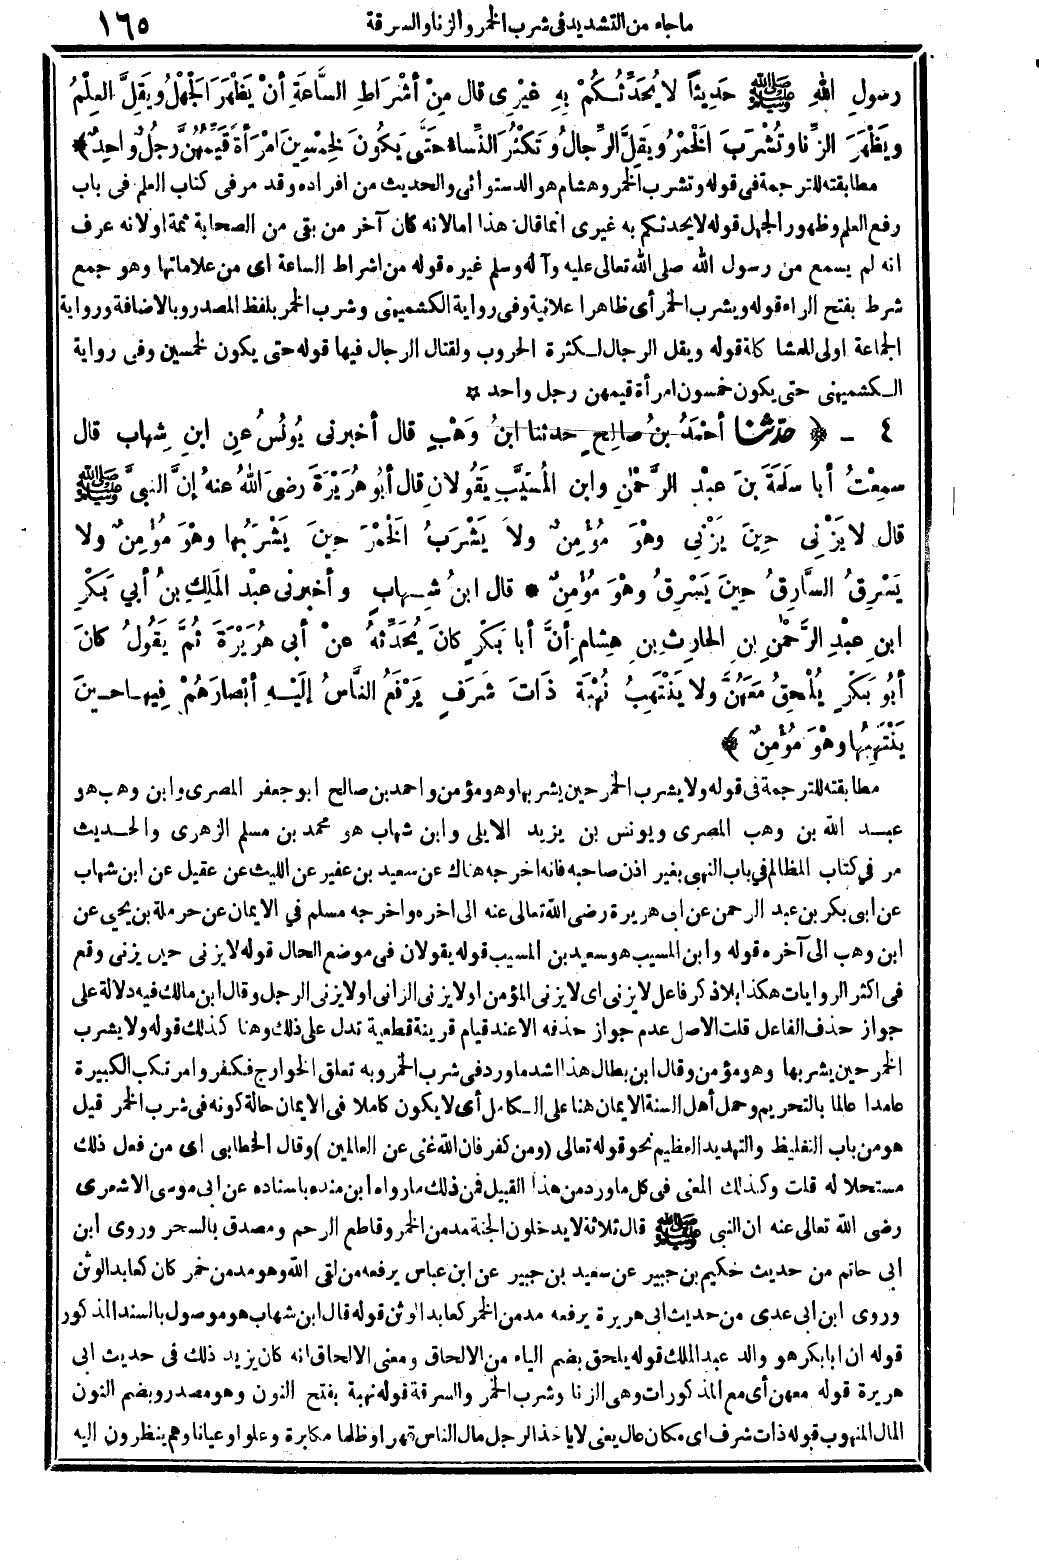 ما جاء من التشديد فى شرب الخمر والزنا والسرقة ١٦٥
رسولِ اللهِ ﷺ حَدِيثاً لا يُحَدِّثُـكُمْ بِهِ غيْرِى قال مِنْ أشْرَاطِ السَّاعَةِ أنْ يَظْهَرَ الجَهْلُ ويَقِلَّ العِلْمُ
ويَظْهَرَ الزِّنا وتُشْرَبَ الخَمْرُ ويَقِلَّ الرِّجالُ وتَكْثُرَ النِّساءُ حَتَّى يَكُونَ لخِمْسِينَ امْرَأةً قَيِّمُهُنَّ رجُلٌ واحِدٌ ﴾
مطابقته للترجمة فى قوله وتشرب الخمر وهشام هو الدستوائى والحديث من افراده وقد مر فى كتاب العلم فى باب
رفع العلم وظهور الجهل قوله لا يحدثكم به غيرى انما قال هذا اما لانه كان آخر من بقى من الصحابة ثمة او لانه عرف
انه لم يسمع من رسول الله صلى الله تعالى عليه وآله وسلم غيره قوله من اشراط الساعة اى من علاماتها وهو جمع
شرط بفتح الراء قوله ويشرب الخمر أى ظاهرا علانية وفى رواية الكشميهنى وشرب الخمر بلفظ المصدر وبالاضافة ورواية
الجماعة اولى للمشاكلة قوله ويقل الرجال لـكثرة الحروب ولقتال الرجال فيها قوله حتى يكون لخمسين وفى رواية
الـكشميهنى حتى يكون خمسون امرأة قيمهن رجل واحد ✡
٤ ـ ﴿ حدّثنا أحْمَدُ بنُ صالِحٍ حدثنا ابنُ وَهْبٍ قال أخبرنى يُونُسُ عنِ ابنِ شِهاب قال
سمِعْتُ أبا سلَمَةَ بنَ عبْدِ الرَّحْمٰنِ وابن المُسَيَّبِ يَقُولانِ قال أبُو هُرَيْرَةَ رضى اللهُ عنهُ إنَّ النبىَّ ﷺ
قال لا يَزْنِى حِينَ يَزْنِى وهْوَ مُؤْمِنٌ ولا يَشْرَبُ الخَمْرَ حِينَ يَشْرَبُها وهْوَ مُؤْمِنٌ ولا
يَسْرِقُ السَّارِقُ حِينَ يَسْرِقُ وهْوَ مُؤْمِنٌ * قال ابنُ شِـهابٍ وأخبرنى عبْدُ المَلِكِ بنُ أبي بَكْرِ
ابنِ عبْدِ الرَّحْمٰنِ بنِ الحارِثِ بنِ هِشامٍ أنَّ أبا بَكْرٍ كانَ يُحَدِّثهُ عنْ أبى هُرَيْرَةَ ثُمَّ يَقُولُ كانَ
أبُو بَكْرٍ يُلْحِقُ مَعَهُنَّ ولا يَنْتَهِبُ نُهْبَةً ذَاتَ شَرَفٍ يَرْفَعُ النَّاسُ إلَيْـهِ أبْصارَهُمْ فِيهـا حـينَ
يَنْتَهِبُها وهْوَ مُؤْمِنٌ ﴾
مطابقته للترجمة فى قوله ولا يشرب الخمر حين يشربها وهو مؤمن واحمد بن صالح ابو جعفر المصرى وابن وهب هو
عبـد الله بن وهب المصرى ويونس بن يزيد الايلى وابن شهاب هو محمد بن مسلم الزهرى والحـديث
مر في كتاب المظالم في باب النهبى بغير اذن صاحبه فانه اخرجه هناك عن سعيد بن عفير عن الليث عن عقيل عن ابن شهاب
عن ابى بكر بن عبد الرحمن عن ابى هريرة رضى الله تعالى عنه الى اخره واخرجه مسلم في الايمان عن حرملة بن يحيى عن
ابن وهب الى آخره قوله وابن المسيب هو سعيد بن المسيب قوله يقولان فى موضع الحال قوله لا يزنى حين يزنى وقع
فى اكثر الروايات هكذا بلا ذكر فاعل لا يزنى اى لا يزنى المؤمن او لا يزنى الزانى او لا يزنى الرجل وقال ابن مالك فيه دلالة على
جواز حذف الفاعل قلت الاصل عدم جواز حذفه الا عند قيام قرينة قطعية تدل على ذلك وهنا كذلك قوله ولا يشرب
الخمر حين يشربها وهو مؤمن وقال ابن بطال هذا اشد ما ورد فى شرب الخمر وبه تعلق الخوارج فكفروا مرتكب الكبيرة
عامدا عالما بالتحريم وحمل أهل السنة الايمان هنا على الـكامل أى لا يكون كاملا فى الايمان حالة كونه فى شرب الخمر قيل
هو من باب التغليظ والتهديد العظيم نحو قوله تعالى ( ومن كفر فان الله غنى عن العالمين ) وقال الخطابى اى من فعل ذلك
مستحلا له قلت وكذلك المعنى فى كل ما ورد من هذا القبيل فمن ذلك ما رواه ابن منده باسناده عن ابى موسى الاشعرى
رضى الله تعالى عنه ان النبى ﷺ قال ثلاثة لا يدخلون الجنة مدمن الخمر وقاطع الرحم ومصدق بالسحر وروى ابن
ابى حاتم من حديث حكيم بن جبير عن سعيد بن جبير عن ابن عباس يرفعه من لقى الله وهو مدمن خمر كان كعابد الوثن
وروى ابن ابى عدى من حديث ابى هريرة يرفعه مدمن الخمر كعابد الوثن قوله قال ابن شهاب هو موصول بالسند المذكور
قوله ان ابا بكر هو والد عبد الملك قوله يلحق بضم الياء من الالحاق ومعنى الالحاق انه كان يزيد ذلك فى حديث ابى
هريرة قوله معهن أى مع المذكورات وهى الزنا وشرب الخمر والسرقة قوله نهبة بفتح النون وهو مصدر وبضم النون
المال المنهوب قوله ذات شرف اى مكان عال يعنى لا ياخذ الرجل مال الناس قهرا وظلما مكابرة وعلوا وعيانا وهم ينظرون اليه